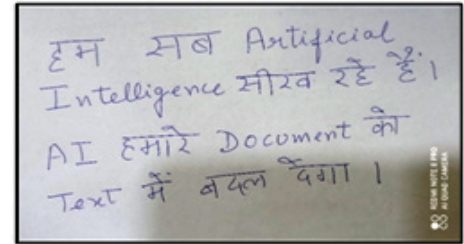 हम सब Artificial
Intelligence सीख रहे हैं।
AI हमारे Document को
Text में बदल देगा ।
REDMI NOTE 8 PRO
AI QUAD CAMERA